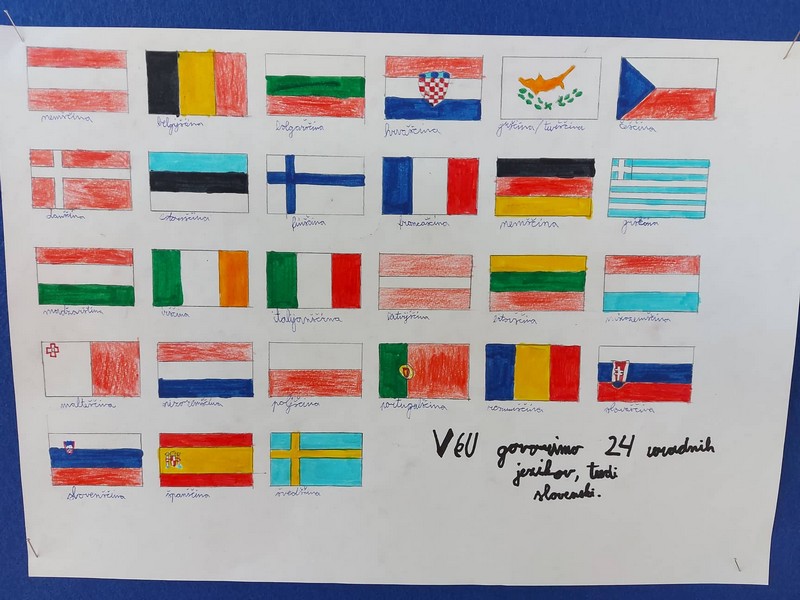 nemščina belgijščina bolgarščina hrvaščina grščina/turščina češčina
danščina estonščina finščina francoščina nemščina grščina
madžarščina irščina italijanščina latvijščina litovščina
malteščina nizozemščina poljščina portugalščina romunščina slovaščina
slovenščina španščina švedščina
V EU govorimo 24 uradnih
jezikov, tudi
slovenski.